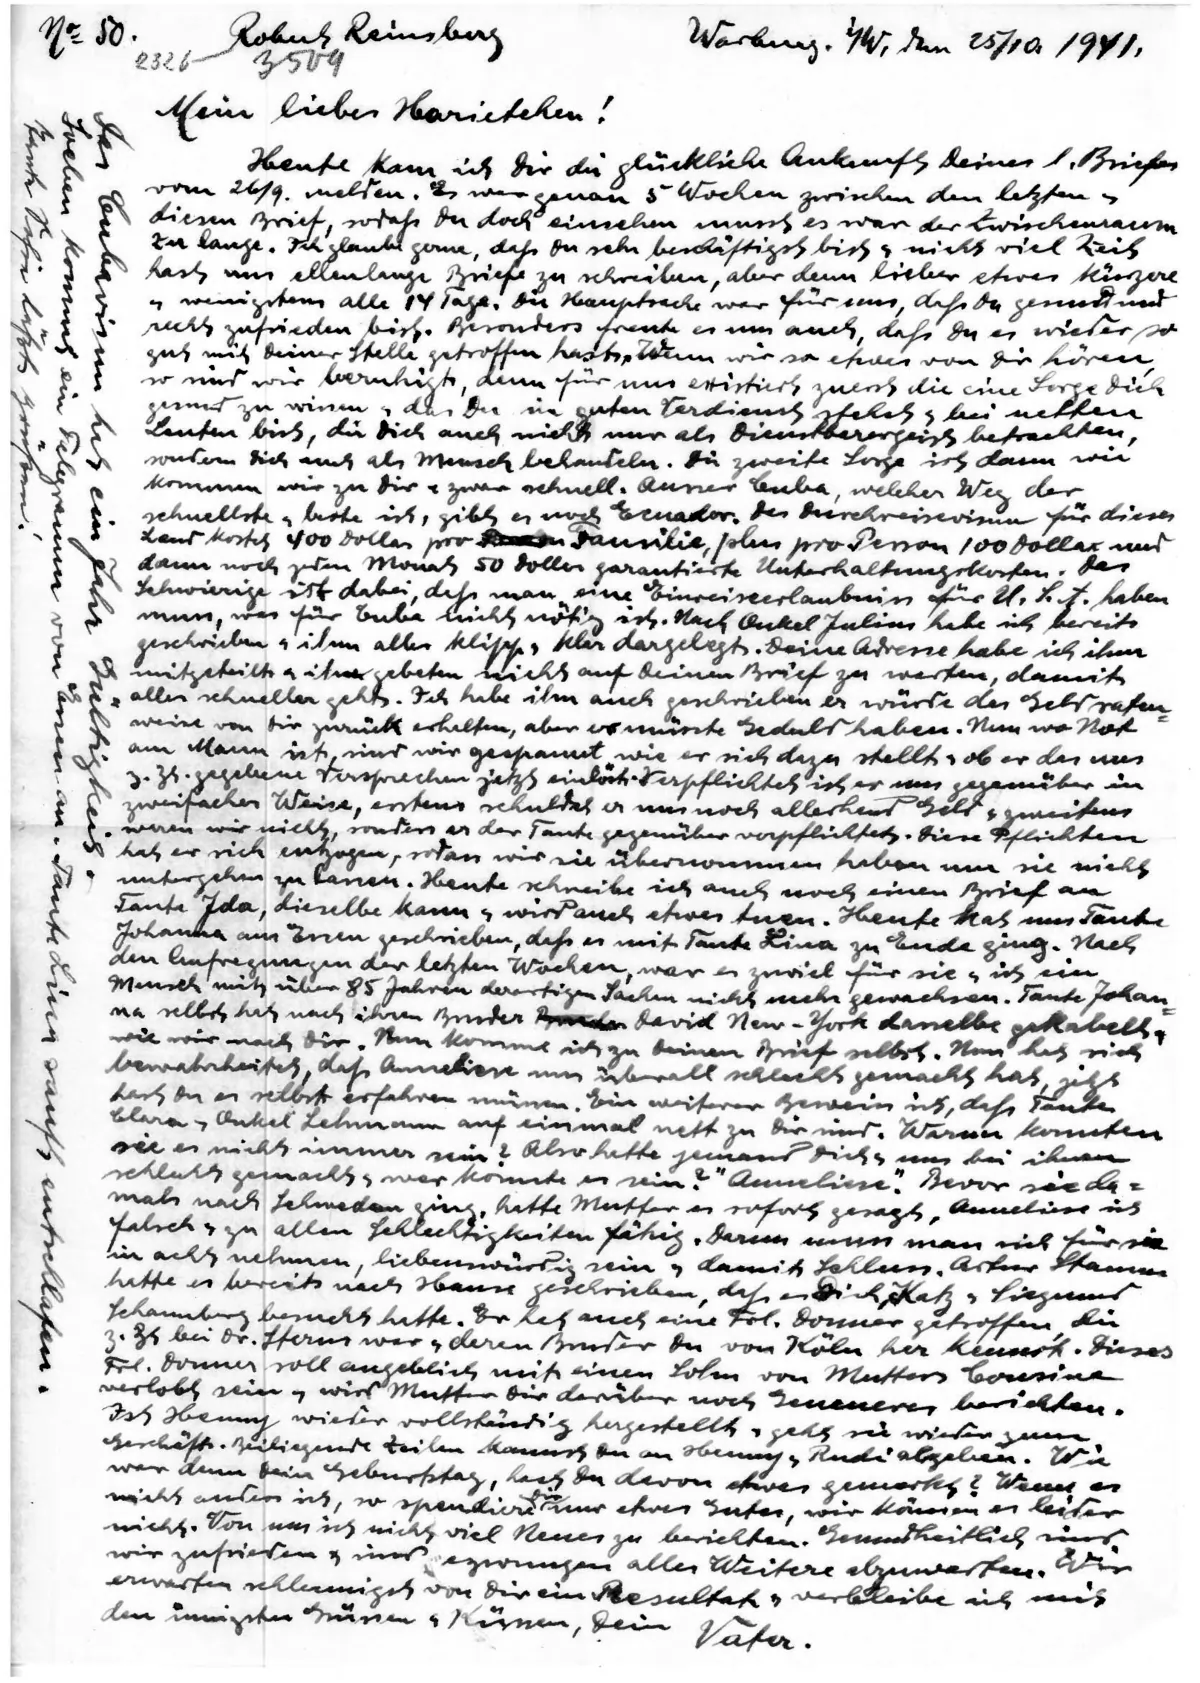 No 50. Robert Reinsberg Warburg. i/W, den 25/10. 1941.
2326 3504
Mein liebes Harietchen!
Heute kann ich Dir die glückliche Ankunft Deines l. Briefes
vom 26/9. melden. Es war genau 5 Wochen zwischen den letzten u
diesen Brief, sodaß Du doch einsehen musst es war der Zwischenraum
zu lange. Ich glaube gerne, daß Du sehr beschäftigst bist u nicht viel Zeit
hast uns ellenlange Briefe zu schreiben, aber dann lieber etwas kürzere
u wenigstens alle 14 Tage. Die Hauptsache war für uns, daß Du gesund und
recht zufrieden bist. Besonders freute es uns auch, daß Du es wieder so
gut mit Deiner Stelle getroffen hast. Wenn wir so etwas von Dir hören,
so sind wir beruhigt, denn für uns existiert zuerst die eine Sorge Dich
gesund zu wissen u das Du in guten Verdienst stehst u bei netten
Leuten bist, die Dich auch nicht nur als Dienstbarergeist betrachten,
sondern Dich auch als Mensch behandeln. Die zweite Sorge ist dann wie
kommen wir zu Dir u zwar schnell. Ausser Cuba, welcher Weg der
schnellste u beste ist, gibt es noch Ecuador. Das Durchreisevisum für dieses
Land kostet 400 Dollar pro Familie, plus pro Person 100 Dollar und
dann noch jeden Monat 50 Dollar garantierte Unterhaltungskosten. Das
Schwierige ist dabei, daß man eine Einreiseerlaubniss für U.S.A. haben
muss, was für Cuba nicht nötig ist. Nach Onkel Julius habe ich bereits
geschrieben u ihm alles klipp u klar dargelegt. Deine Adresse habe ich ihm
mitgeteilt u ihn gebeten nicht auf Deinen Brief zu warten, damit
alles schneller geht. Ich habe ihm auch geschrieben er würde das Geld raten=
weise von Dir zurück erhalten, aber er müsste Geduld haben. Nun wo Not
am Mann ist, sind wir gespannt wie er sich dazu stellt u ob er das uns
z. Zt. gegebene Versprechen jetzt einlöst. Verpflichtet ist er uns gegenüber in
zweifacher Weise, erstens schuldet er uns noch allerhand Geld u zweitens
waren wir nicht, sondern er der Tante gegenüber verpflichtet. Diese Pflichten
hat er sich entzogen, sodass wir sie übernommen haben um sie nicht
untergehn zu lassen. Heute schreibe ich auch noch einen Brief an
Tante Ida, dieselbe kann u wird auch etwas tuen. Heute hat uns Tante
Johanna aus Essen geschrieben, daß es mit Tante Lina zu Ende ging. Nach
den Aufregungen der letzten Wochen, war es zuviel für sie u ist ein
Mensch mit über 85 Jahren derartigen Sachen nicht mehr gewachsen. Tante Johan=
na selbst hat nach ihren Bruder David New-York dasselbe gekabelt u
wie wir nach Dir. Nun komme ich zu Deinen Brief selbst. Nun hat sich
bewahrheitet, daß Anneliese uns überall schlecht gemacht hat, jetzt
hast Du es selbst erfahren müssen. Ein weiterer Beweis ist, daß Tante
Clara u Onkel Lehmann auf einmal nett zu Dir sind. Warum konnten
sie es nicht immer sein? Also hatte jemand Dich u uns bei ihnen
schlecht gemacht u wer könnte es sein? "Anneliese". Bevor sie da=
mals nach Schweden ging, hatte Mutter es sofort gesagt, Anneliese ist
falsch u zu allen Schlechtigkeiten fähig. Darum muss man sich für sie
in acht nehmen, liebenswürdig sein u damit Schluss. Artur Stamm
hatte es bereits nach Hause geschrieben, daß er Dich, Katz u Siegmund
Schaumberg besucht hatte. Er hat auch eine Frl. Donner getroffen die
z. Zt bei Dr. Sterns war u deren Bruder Du von Köln her kennst. Dieses
Frl. Donner soll angeblich mit einen Sohn von Mutters Cousine
verlobt sein u wird Mutter Dir darüber noch Genaueres berichten.
Ist Henny wieder vollständig hergestellt u geht sie wieder zum
Geschäft. Beiliegende Zeilen kannst Du an Henny u Rudi abgeben. Wie
war denn Dein Geburtstag, hast Du davon etwas gemerkt? Wenn es
nicht anders ist, so spendiere Dir nur etwas Gutes, wir können es leider
nicht. Von uns ist nicht viel Neues zu berichten. Gesundheitlich sind
wir zufrieden u sind gezwungen alles Weitere abzuwarten. Wir
erwarten schleunigst von Dir ein Resultat u verbleibe ich mit
den innigsten Grüssen u Küssen, Dein
Vater.
Das Cubavisum hat ein Jahr Gültigkeit.
Soeben kommt ein Telegramm von Essen an. Tante Lina sanft entschlafen.
Tante Sofie läßt grüssen!